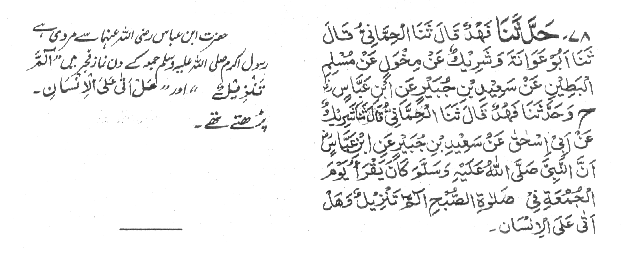 ۷۸- حَدَّثَنَا فَهْدٌ قَالَ ثَنَا الْحِمَّانِيُّ قَالَ
ثَنَا اَبُوْ عَوَانَةَ وَشَرِيْكٌ عَنْ مِخْوَلٍ عَنْ مُسْلِمٍ
الْبَطِيْنِ عَنْ سَعِيْدِ بْنِ جُبَيْرٍ عَنِ ابْنِ عَبَّاسٍ
ح وَحَدَّثَنَا فَهْدٌ قَالَ ثَنَا الْحِمَّانِيُّ قَالَ ثَنَا شَرِيْكٌ
عَنْ اَبِيْ اِسْحٰقَ عَنْ سَعِيْدِ بْنِ جُبَيْرٍ عَنِ ابْنِ عَبَّاسٍ
اَنَّ النَّبِيَّ صَلَّى اللهُ عَلَيْهِ وَسَلَّمَ كَانَ يَقْرَأُ يَوْمَ
الْجُمُعَةِ فِيْ صَلٰوةِ الصُّبْحِ الٓمّٓ تَنْزِيْلُ وَهَلْ
اَتٰى عَلَى الْاِنْسَانِ۔
حضرت ابن عباس رضی اللہ عنہما سے مروی ہے
رسول اکرم صلی اللہ علیہ وسلم جمعہ کے دن نماز فجر میں "الٓمّٓ
تَنْزِيْلُ" اور "هَلْ اَتٰى عَلَى الْاِنْسَانِ۔
پڑھتے تھے۔